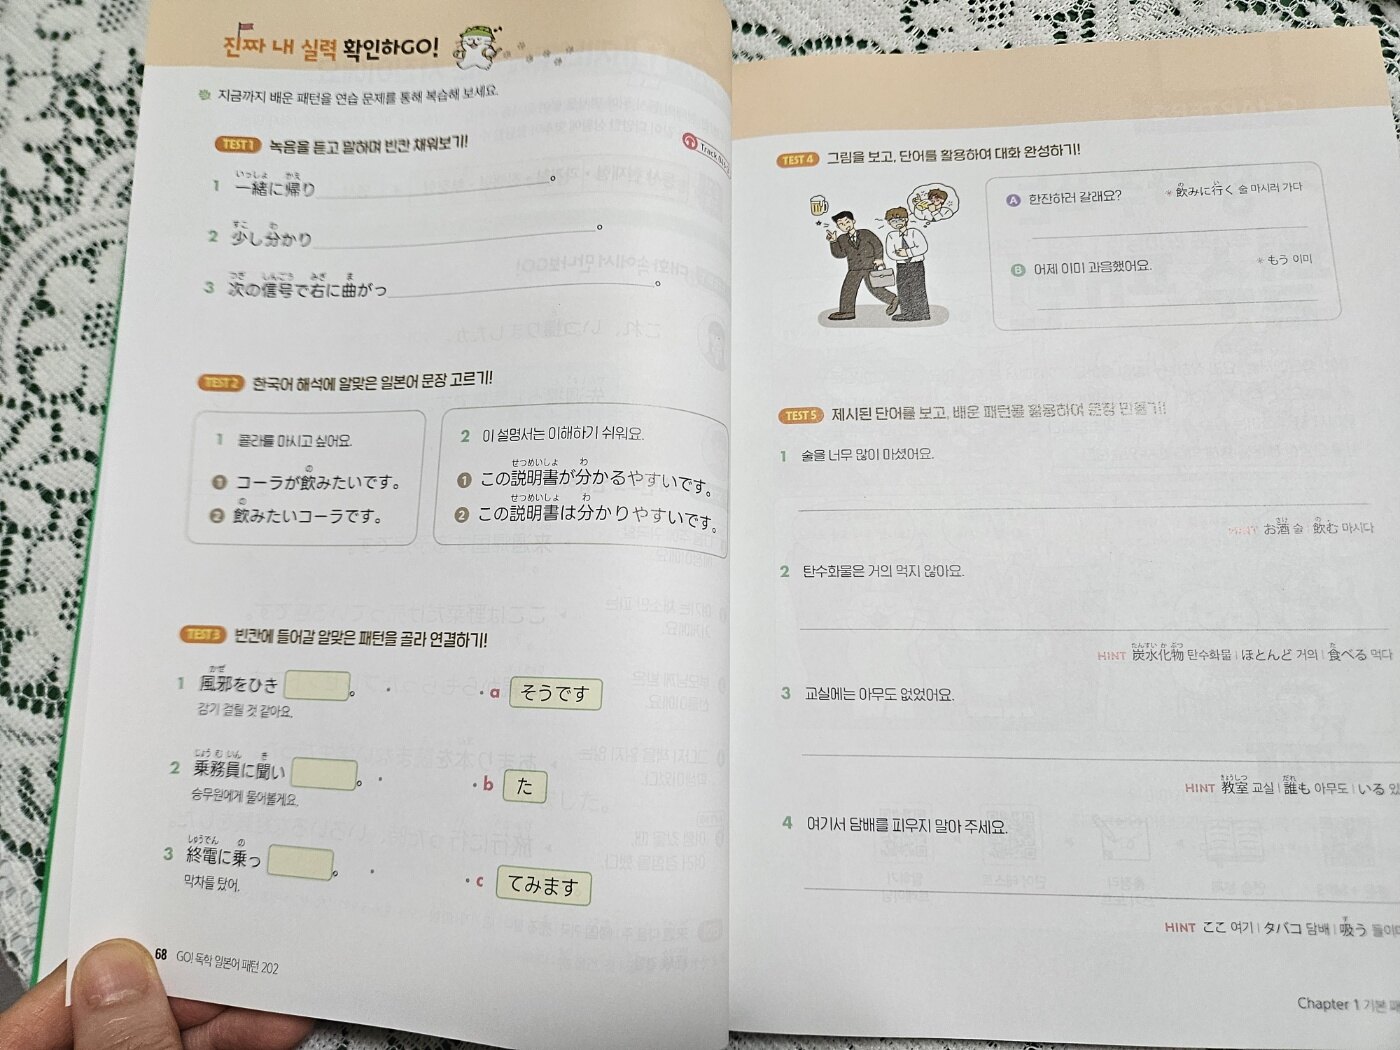 진짜 내 실력 확인하GO!
지금까지 배운 패턴을 연습 문제를 통해 복습해 보세요.
TEST 1 녹음을 듣고 말하며 빈칸 채워보기!
Track
いっしょ かえ
1 一緒に帰り 。
すこ わ
2 少し分かり 。
つぎ しんごう みぎ ま
3 次の信号で右に曲がっ 。
TEST 2 한국어 해석에 알맞은 일본어 문장 고르기!
1 콜라를 마시고 싶어요.
の
1 コーラが飲みたいです。
の
2 飲みたいコーラです。
2 이 설명서는 이해하기 쉬워요.
せつめいしょ わ
1 この説明書が分かるやすいです。
せつめいしょ わ
2 この説明書は分かりやすいです。
TEST 3 빈칸에 들어갈 알맞은 패턴을 골라 연결하기!
かぜ
1 風邪をひき 。
감기 걸릴 것 같아요.
a そうです
じょうむいん き
2 乗務員に聞い 。
승무원에게 물어볼게요.
b た
しゅうでん の
3 終電に乗っ 。
막차를 탔어.
c てみます
68 GO! 독학 일본어 패턴 202
TEST 4 그림을 보고, 단어를 활용하여 대화 완성하기!
A 한잔하러 갈래요?
の い
* 飲みに行く 술 마시러 가다
B 어제 이미 과음했어요.
* もう 이미
TEST 5 제시된 단어를 보고, 배운 패턴을 활용하여 문장 만들기!
1 술을 너무 많이 마셨어요.
さけ の
HINT お酒 술 | 飲む 마시다
2 탄수화물은 거의 먹지 않아요.
たんすいかぶつ た
HINT 炭水化物 탄수화물 | ほとんど 거의 | 食べる 먹다
3 교실에는 아무도 없었어요.
きょうしつ だれ
HINT 教室 교실 | 誰も 아무도 | いる 있
4 여기서 담배를 피우지 말아 주세요.
す
HINT ここ 여기 | タバコ 담배 | 吸う 들이마
Chapter 1 기본 패